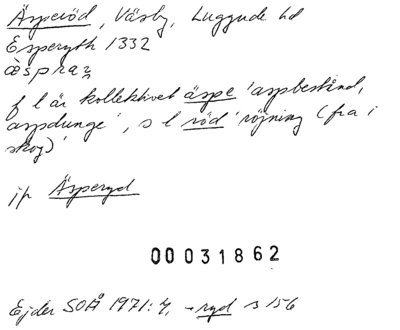 Äsperöd, Väsby, Luggude hd
Esperyth 1332
æspraz
f l är kollektivet äspe 'aspbestånd,
aspdunge', s l röd 'röjning (fra i
skog)'
jfr Äsperyd
00031862
Ejder SOÅ 1971:4, -ryd s 156